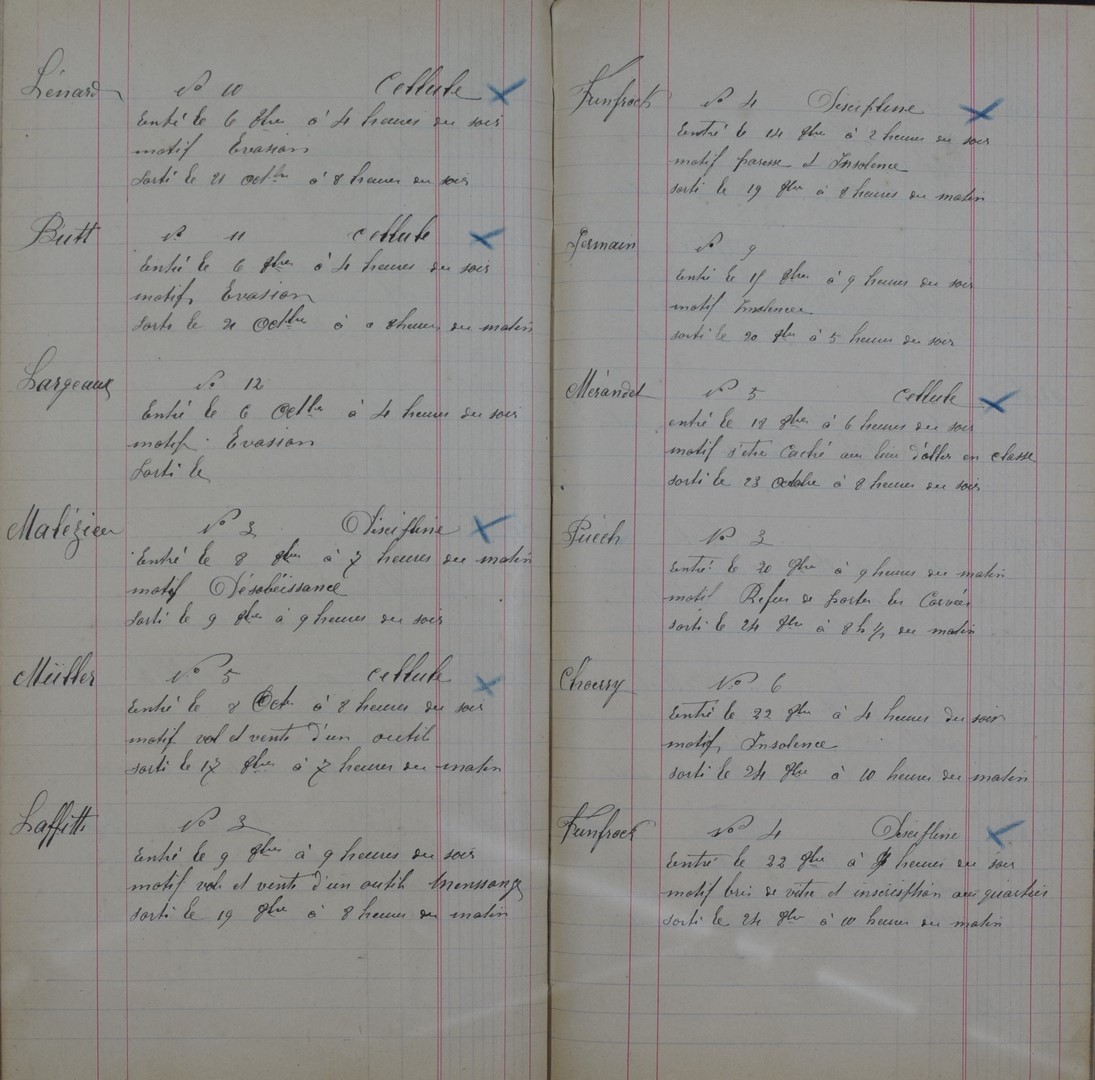 Lénard N° 10 Cellule
Entré le 6 8bre à 4 heures du soir
motif Evasion
Sorti le 21 octbre à 8 heures du soir
Bütt N° 11 cellule
Entré le 6 8bre à 4 heures du soir
motif Evasion
Sorti le 21 Octbre à 8 heures du matin
Largeaux N° 12
Entré le 6 Octbre à 4 heures du soir
motif Evasion
Sorti le
Malézieu N° 3 Discipline
Entré le 8 8bre à 7 heures du matin
motif Désobéissance
Sorti le 9 8bre à 9 heures du soir
Müller N° 5 cellule
Entré le 8 Octre à 8 heures du soir
motif vol et vente d'un outil
sorti le 17 8bre à 7 heures du matin
Laffitte N° 3
Entré le 9 8bre à 9 heures du soir
motif vol et vente d'un outil mensonge
sorti le 19 8bre à 8 heures du matin
Funfrock N° 4 Discipline
Entré le 14 8bre à 2 heures du soir
motif paresse et Insolence
sorti le 19 8bre à 8 heures du matin
Germain N° 9
Entré le 15 8bre à 9 heures du soir
motif Insolence
sorti le 20 8bre à 5 heures du soir
Mérandet N° 5 cellule
entré le 18 8bre à 6 heures du soir
motif s'etre caché au lieu d'aller en classe
sorti le 23 octobre à 8 heures du soir
Puech N° 3
Entré le 20 8bre à 9 heures du matin
motif Refus de porter les Corvées
sorti le 24 8bre à 8 h ½ du matin
Chourry N° 6
Entré le 22 8bre à 4 heures du soir
motif Insolence
sorti le 24 8bre à 10 heures du matin
Funfrock N° 4 Discipline
Entré le 22 8bre à heures du soir
motif bris de vitre et inscription au quartier
Sorti le 24 8bre à 10 heures du matin